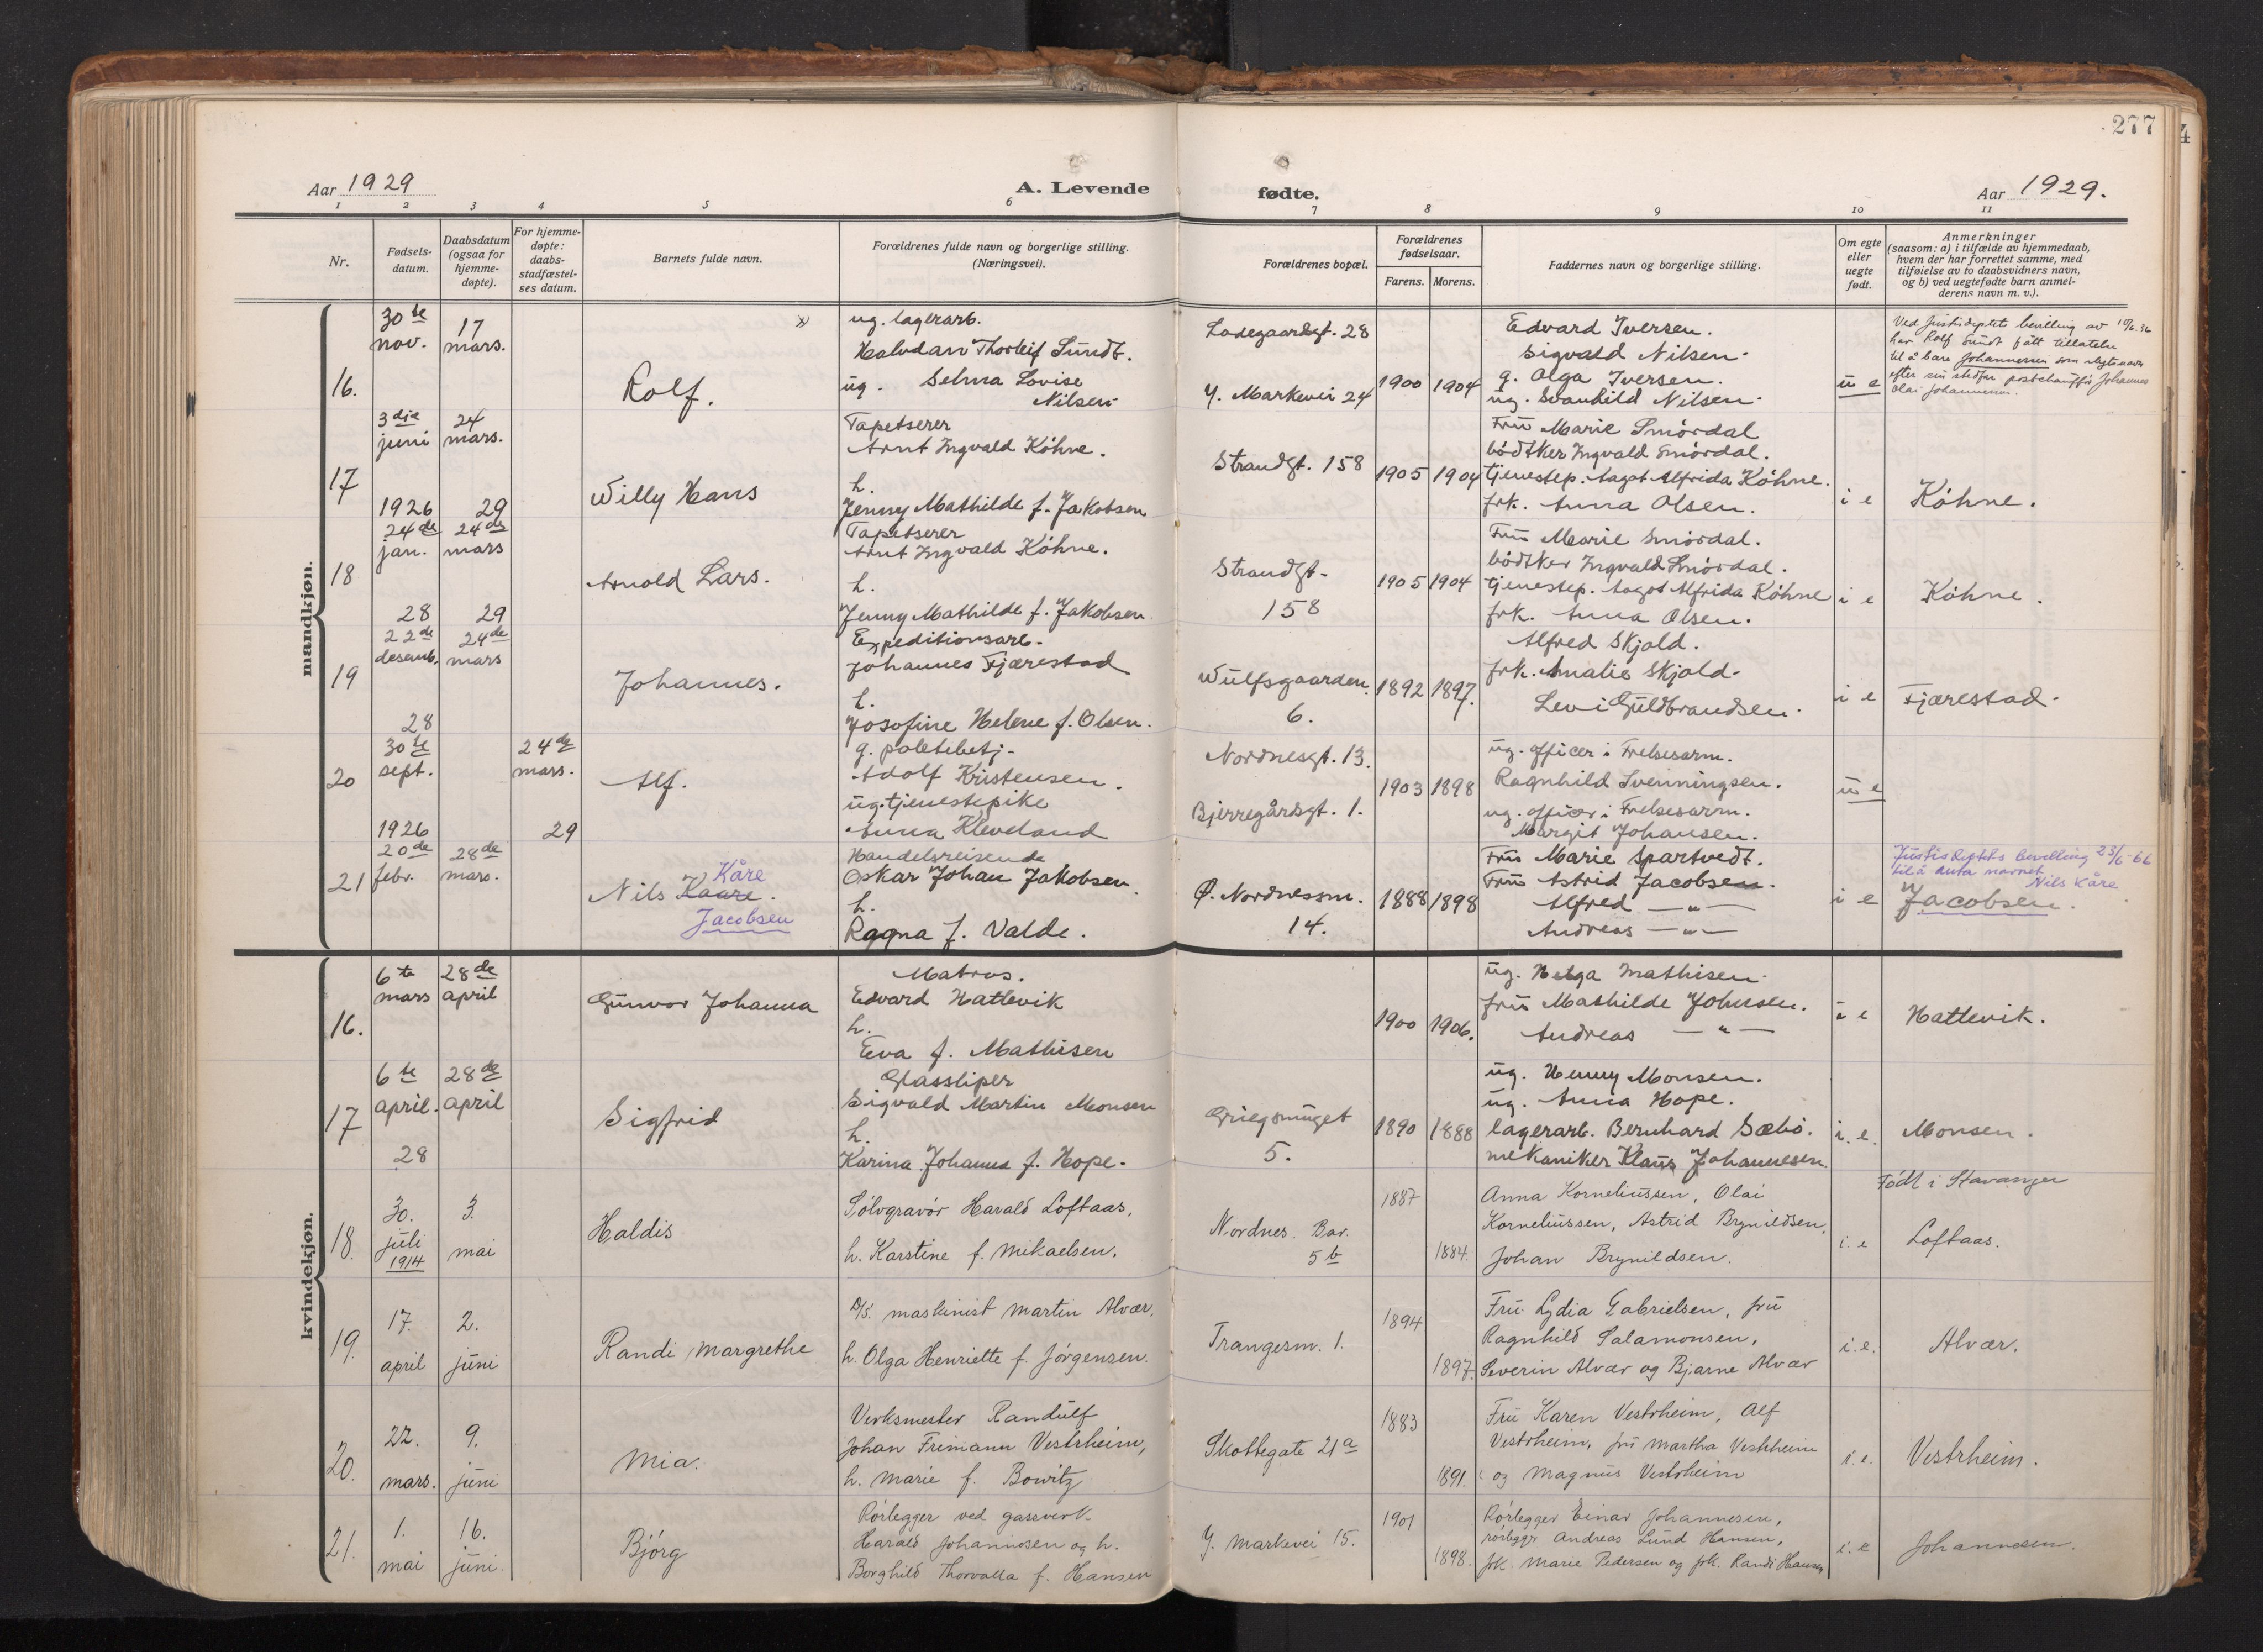 277
Aar 1929
A. Levende
fødte.
Aar 1929.
1 2 3 4 5 6 7 8 9 10 11
Nr.
Fødsels-
datum.
Daabsdatum
(ogsaa for
hjemme-
døpte).
For hjemme-
døpte:
daabs-
stadfæstel-
ses datum.
Barnets fulde navn.
Forældrenes fulde navn og borgerlige stilling.
(Næringsvei).
Forældrenes bopæl.
Forældrenes
fødselsaar.
Farens. Morens.
Faddernes navn og borgerlige stilling.
Om egte
eller
uegte
født.
Anmerkninger
(saasom: a) i tilfælde av hjemmedaab,
hvem der har forrettet samme, med
tilføielse av to daabsvidners navn,
og b) ved uegtefødte barn anmel-
derens navn m. v.).
mandkjøn.
16.
30te
nov.
17
mars.
Rolf.
ug. lagerarb.
Halvdan Thorleif Sundt.
ug. Selma Lovise
Nilsen
Ladegaardsgt. 28
Y. Markevei 24
1900 1904
Edvard Iversen.
Sigvald Nilsen.
g. Olga Iversen.
ug. Svanhild Nilsen.
u e
Ved Justisdeptets bevilling av 10/6.36
har Rolf Sundt fått tillatelse
til å bære Johannessen som slegtsnavn
efter sin stedfar postchauffør Johannes
Olai Johannessen.
17
3dje
juni
1926
24
mars.
29
Willy Hans
Tapetserer
Arnt Ingvald Köhne.
h.
Jenny Mathilde f. Jakobsen
Strandgt. 158
1905 1904
Fru Marie Smördal
bödtker Ingvald Smördal.
tjenestep. Aagot Alfrida Köhne.
frk. Anna Olsen.
i e
Köhne.
18
24de
jan.
28
24de
mars
29
Arnold Lars.
Tapetserer
Arnt Ingvald Köhne.
h.
Jenny Mathilde f. Jakobsen.
Strandgt.
158
1905 1904
Fru Marie Smördal.
bödtker Ingvald Smördal.
tjenestep. Aagot Alfrida Köhne
frk. Anna Olsen.
i e
Köhne.
19
22de
desemb.
28
24de
mars
Johannes.
Expeditionsarb.
Johannes Fjærestad
h.
Josofine Helene f. Olsen.
Wulfsgaarden
6.
1892 1897.
Alfred Skjold.
frk. Amalie Skjold.
Levi Guldbrandsen.
i e
Fjærestad.
20
30te
sept.
1926
24de
mars.
29
Alf.
g. politibetj.
Adolf Kristensen.
ug. tjenestepike
Anna Kleveland
Nordnesgt. 13.
Bjerregårdsgt. 1.
1903 1898
ug. officer i Frelsesarm.
Ragnhild Svenningsen.
ug. officer i Frelsesarm.
Margit Johansen.
u e
21
20de
febr.
28de
mars.
Nils Kaare.
Kåre
Jacobsen
Handelsreisende
Oskar Johan Jakobsen.
h.
Ragna f. Valde.
Ö. Nordnessm.
14.
1888 1898
Fru Marie Spartvedt.
Fru Astrid Jacobsen.
Alfred — " —
Andreas — " —
i e
Justisdeptets bevilling 23/6-66
til å anta navnet
Nils Kåre
Jacobsen.
kvindekjøn.
16.
6te
mars
28de
april
Gunvor Johanna
Matros.
Edvard Hatlevik
h.
Eva f. Mathisen
1900 1906.
ug. Helga Mathisen.
fru Mathilde Johnsen.
Andreas — " —
i e
Hatlevik.
17
6te
april.
28
28de
april
Sigfrid
Glassliper
Sigvald Martin Monsen
h.
Karina Johanna f. Hope.
Griegsmuget
5.
1890 1888
ug. Henny Monsen.
ug. Anna Hope.
lagerarb. Bernhard Sæbö.
mekaniker Klaus Johannesen.
i. e.
Monsen.
18.
30.
juli
1914
3.
mai
Haldis
Sölvgravör Harald Loftaas,
h. Karstine f. Mikaelsen.
Nordnes. Bar.
5 b
1887
1884.
Anna Korneliussen, Olai
Korneliussen, Astrid Brynildsen,
Johan Brynildsen.
i. e
Födt i Stavanger
Loftaas.
19.
17.
april
2.
juni
Randi Margrethe
D/S. maskinist Martin Alvær,
h. Olga Henriette f. Jörgensen.
Trangesm. 1.
1894
1897.
Fru Lydia Gabrielsen, fru
Ragnhild Salamonsen,
Severin Alvær og Bjarne Alvær
i. e.
Alvær.
20.
22.
mars.
9.
juni
Mia.
Verksmester Randulf
Johan Frimann Vestrheim,
h. Marie f. Bowitz
Skottegate 21a
1883
1891.
Fru Karen Vestrheim, Alf
Vestrheim, fru Martha Vestrheim
og Magnus Vestrheim
i. e.
Vestrheim.
21.
1.
mai
16.
juni.
Bjórg
Rörlegger ved gassverk
Harald Johannesen og h.
Borghild Thorvalla f. Hansen
Y. Markevei 15.
1901
1898.
Rörlegger Einar Johannesen,
rörlegger Andreas Lund Hansen,
frk. Marie Pedersen og frk. Randi Hansen
i. e
Johannesen.